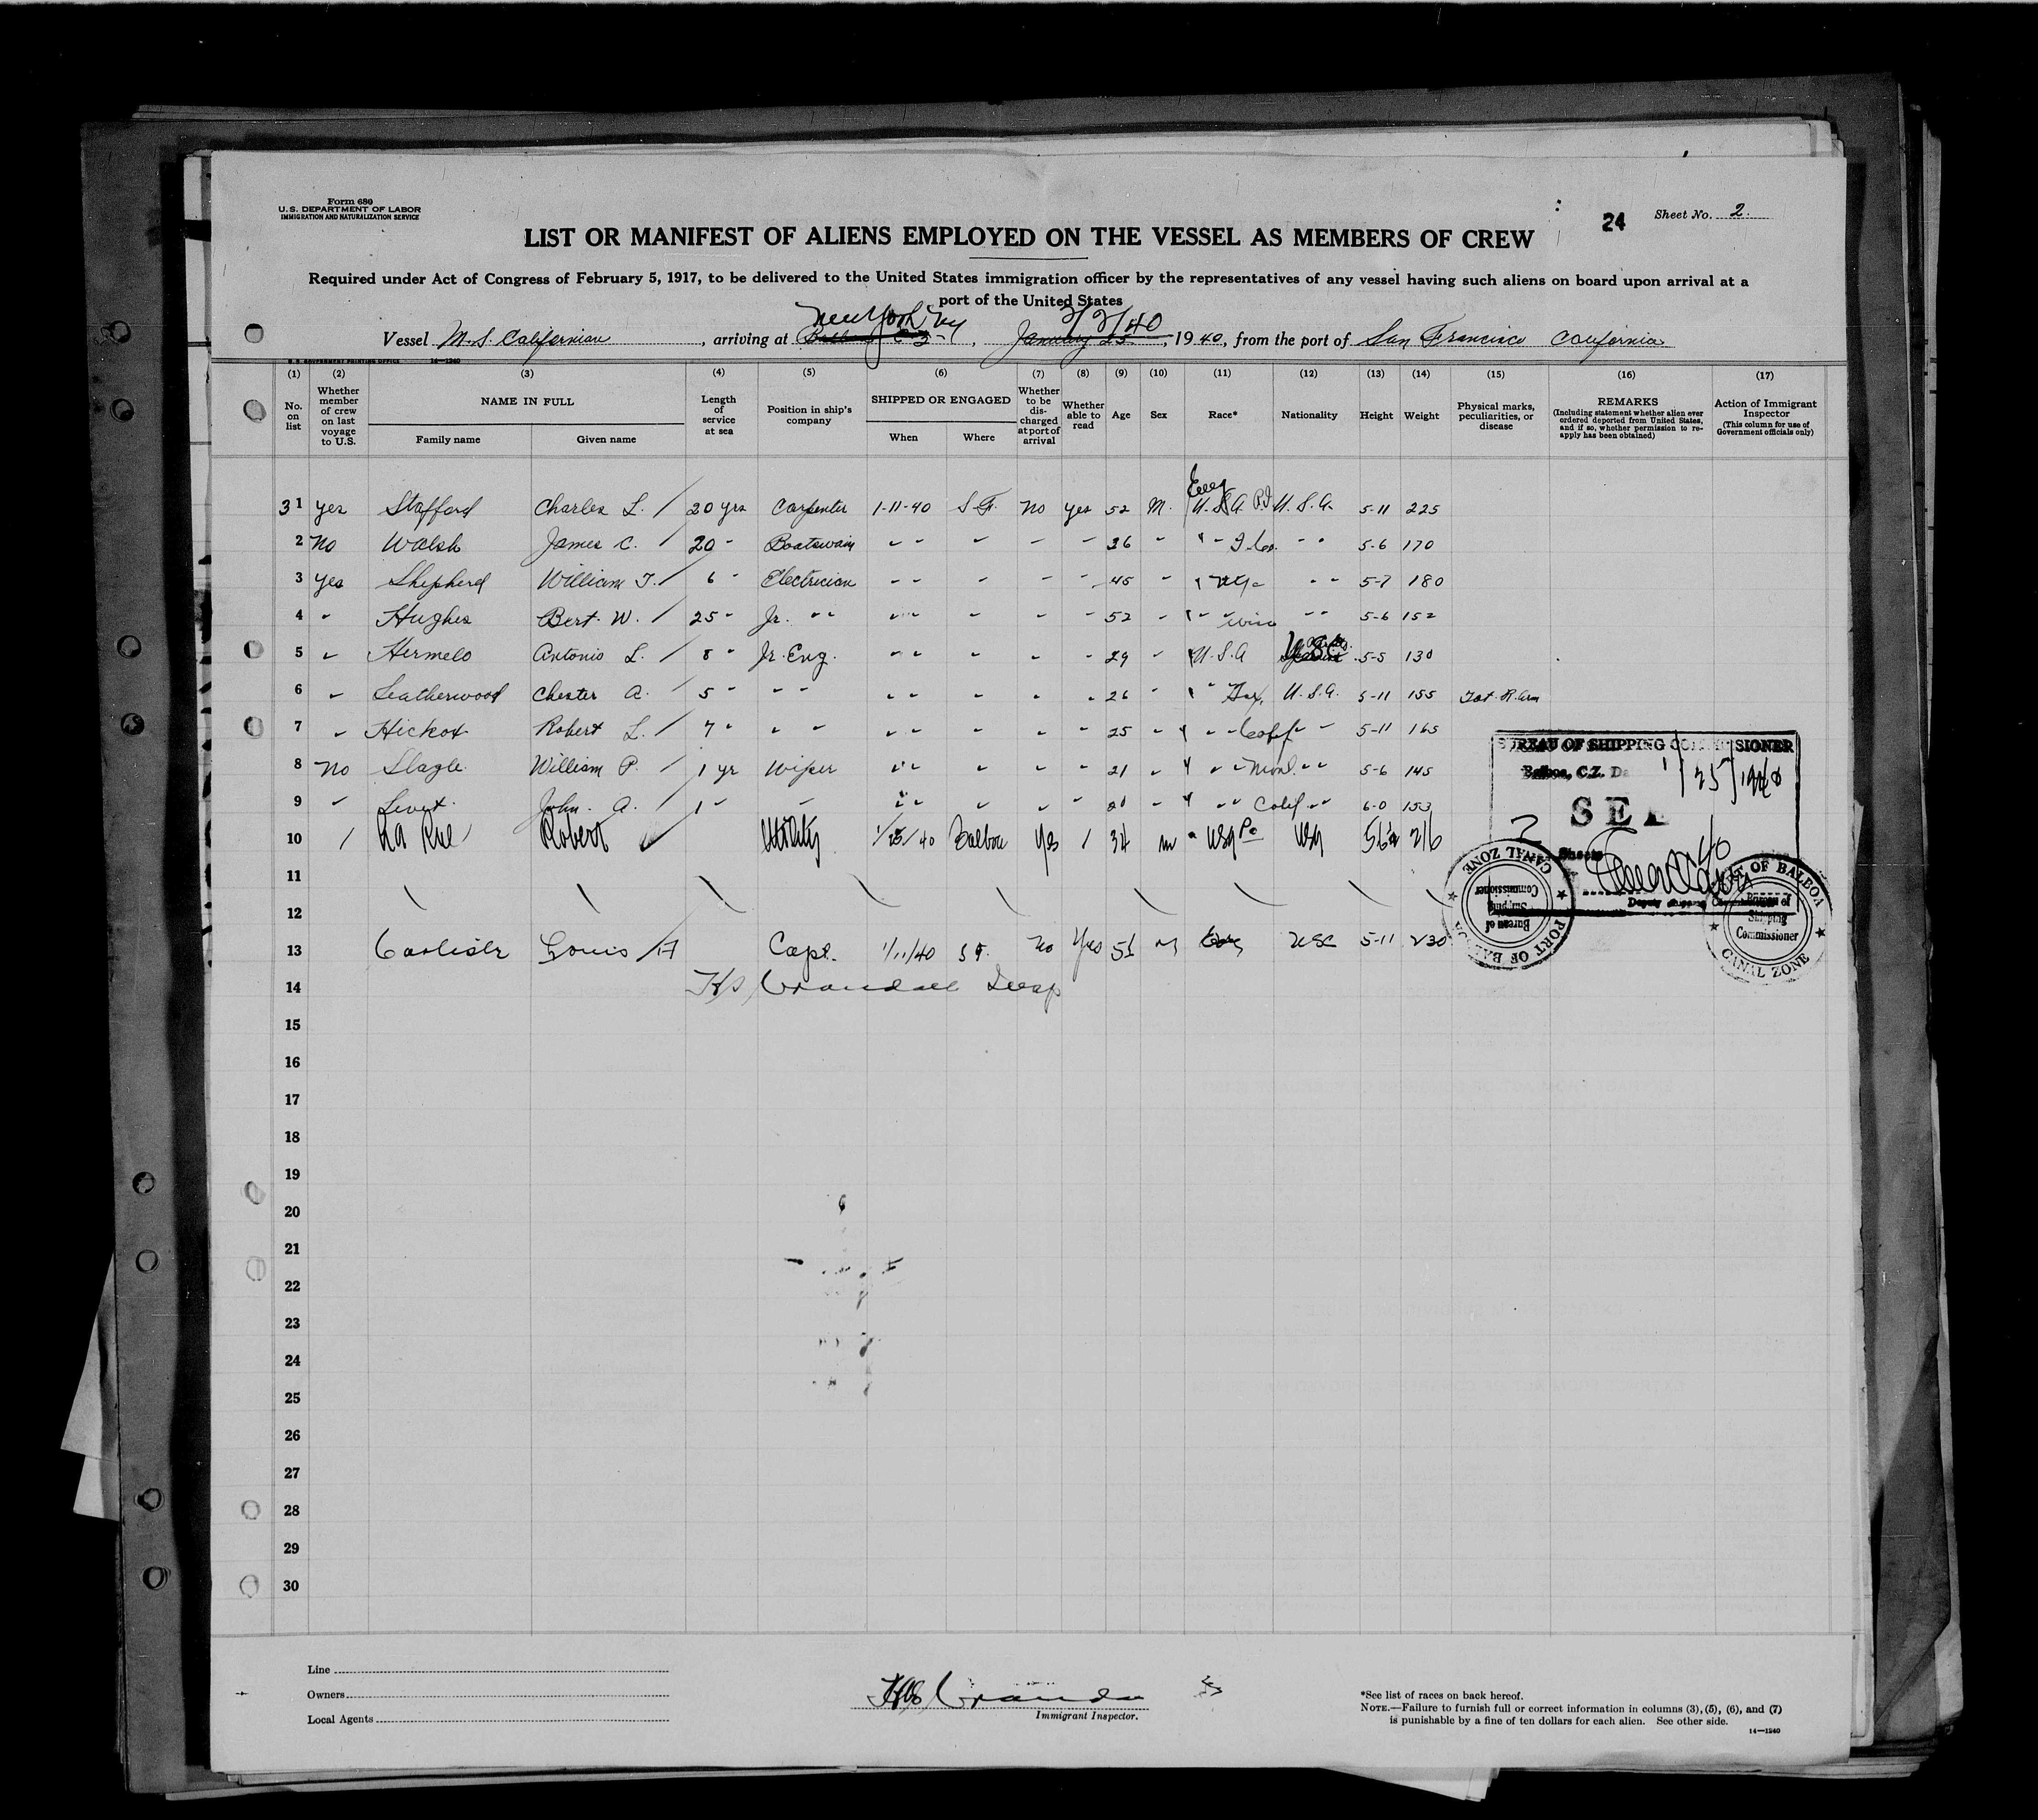 Form 680
U.S. DEPARTMENT OF LABOR
IMMIGRATION AND NATURALIZATION SERVICE
24 Sheet No. 2.
LIST OR MANIFEST OF ALIENS EMPLOYED ON THE VESSEL AS MEMBERS OF CREW
Required under Act of Congress of February 5, 1917, to be delivered to the United States immigration officer by the representatives of any vessel having such aliens on board upon arrival at a
port of the United States
New York NY
Vessel M.S. Californian, arriving at January 25, 1940, from the port of San Francisco California
U. S. GOVERNMENT PRINTING OFFICE 14—1240
(1) (2) (3) (4) (5) (6) (7) (8) (9) (10) (11) (12) (13) (14) (15) (16) (17)
No. on list
Whether member of crew on last voyage to U.S.
NAME IN FULL
Family name
Given name
Length of service at sea
Position in ship's company
SHIPPED OR ENGAGED
When
Where
Whether to be discharged at port of arrival
Whether able to read
Age
Sex
Race*
Nationality
Height
Weight
Physical marks, peculiarities, or disease
REMARKS
(Including statement whether alien ever ordered deported from United States, and if so, whether permission to reapply has been obtained)
Action of Immigrant Inspector
(This column for use of Government officials only)
31 yes Stafford Charles L. / 20 yrs Carpenter 1-11-40 S.F. No yes 52 M. U.S.A. U.S.A. 5-11 225
2 No Walsh James C. / 20 " Boatswain " " " " " 36 " " " " " 5-6 170
3 yes Shepherd William T. / 6 " Electrician " " " " " 45 " " " " 5-7 180
4 " Hughes Bert. W. / 25 " Jr. " " " " " " " 52 " " " Wisc " " 5-6 152
5 " Hermelo Antonio L. / 8 " Jr. Eng. " " " " " 29 " U.S.A 5-5 130
6 " Leatherwood Chester A. / 5 " " " " " " " " 26 " " Tex. U.S.A. 5-11 155 Tat. R. Arm
7 " Hickox Robert L. / 7 " " " " " " " " " 25 " " " Calif " " 5-11 165
8 No Slagle William P. / 1 yr Wiper " " " " " 21 " " " Mont. " " 5-6 145
9 " John. A. / 1 " " " " " " " " " " Calif " " 6-0 153
10 / La Rue Robert Utility 1/25/40 Balboa Yes / 34 m USA Pa USA 216
11
12
13 Carlisle Louis H Capt. 1/11/40 SF. No Yes 51 M USC 5-11 230
14 Crandall Insp
15
16
17
18
19
20
21
22
23
24
25
26
27
28
29
30
BUREAU OF SHIPPING COMMISSIONER
Balboa, C.Z. 1/25/1940
2 Sheets
Deputy Shipping Commissioner
PORT OF BALBOA
Bureau of
Shipping
Commissioner
CANAL ZONE
PORT OF BALBOA
Bureau of
Shipping
Commissioner
CANAL ZONE
Line
Owners
Local Agents
Immigrant Inspector.
*See list of races on back hereof.
NOTE.—Failure to furnish full or correct information in columns (3), (5), (6), and (7)
is punishable by a fine of ten dollars for each alien. See other side.
14—1240